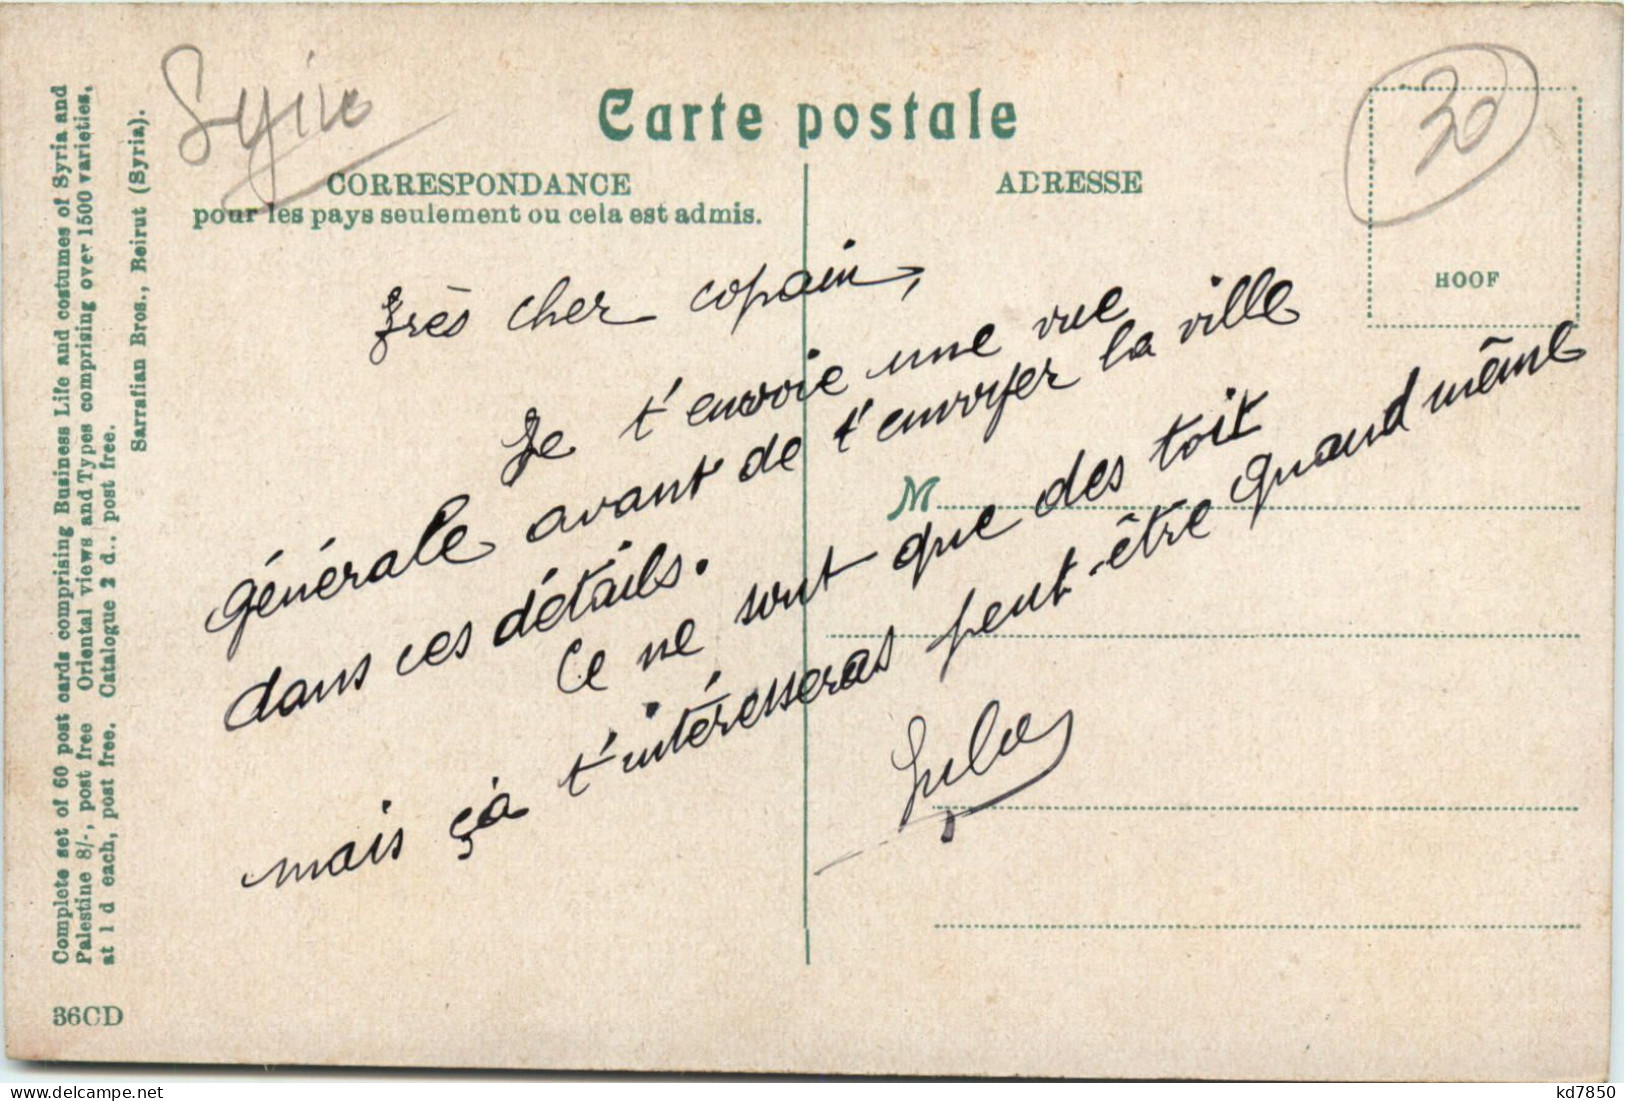 Syrie
30
Carte postale
CORRESPONDANCE
pour les pays seulement ou cela est admis.
ADRESSE
HOOF
Très cher copain,
Je t'envoie une vue
générale avant de t'envoyer la ville
dans ces détails.
Ce ne sont que des toit
mais ça t'intéresseras peut-être quand même
M
Complete set of 60 post cards comprising Business Life and costumes of Syria and
Palestine 8/-, post free Oriental views and Types comprising over 1500 varieties,
at 1 d each, post free. Catalogue 2 d., post free.
Sarrafian Bros., Beirut (Syria).
36CD
www.delcampe.net
kd7850